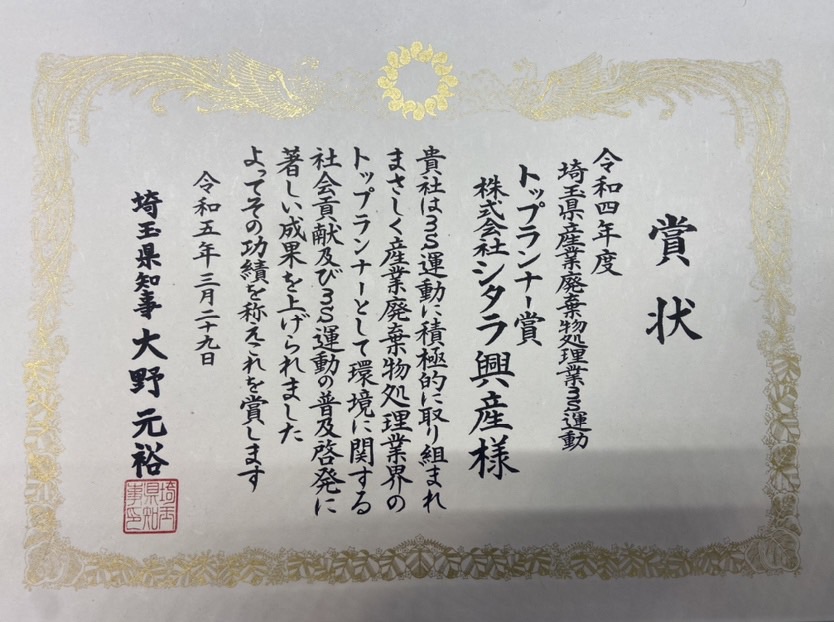 賞状
令和四年度
埼玉県産業廃棄物処理業3S運動
トップランナー賞
株式会社シタラ興産様
貴社は3S運動に積極的に取り組まれ
まさしく産業廃棄物処理業界の
トップランナーとして環境に関する
社会貢献及び3S運動の普及啓発に
著しい成果を上げられました
よってその功績を称えこれを賞します
令和五年三月二十九日
埼玉県知事 大野元裕
埼玉県知事印